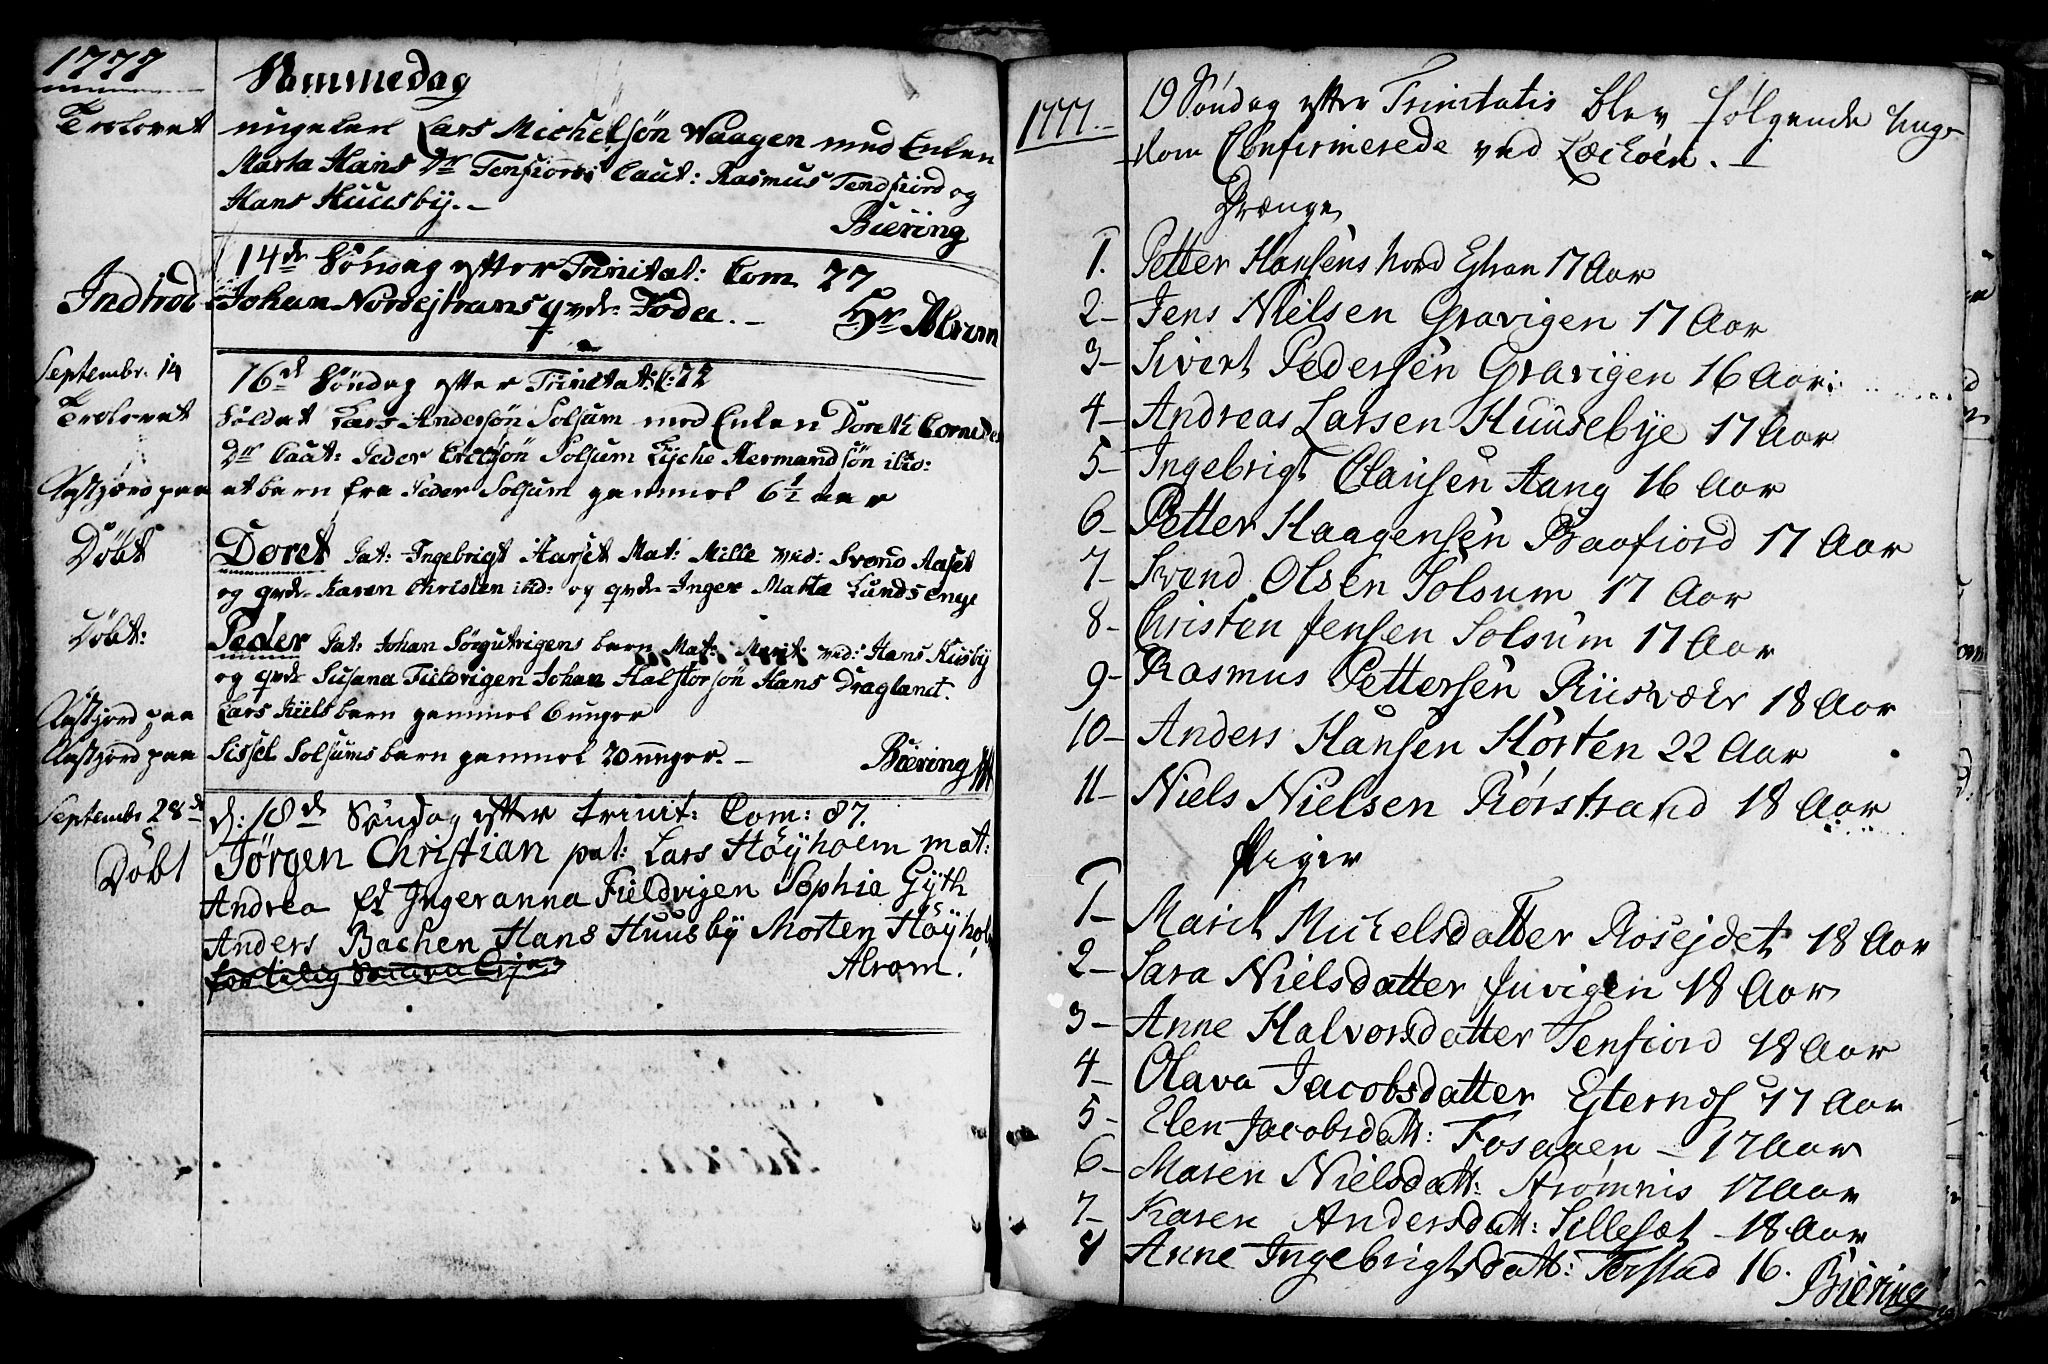 1777
Sammedag
Trolovet
ungekarl Lars Michelsøn Waagen med Enken
Marta Hans Dr Tenfiord Caut: Rasmus Tendfiord og
Hans Huusby.-
Biering
14de Søndag efter Trinitat: Com 27
Indtrod
Johan Nordejtrans qvde Foda.-
Hr Alrom
Septembr. 14
16d Søndag efter Trinitat: C: 72
Trolovet
Soldat Lars Andersøn Solsum med Enken Doreth
Dr Caut: Peder Solsum Lyche Hermandsøn ibid:
Kastjord paa et barn fra Peder Solsum gammel 6½ aar
Døbt
Doret Pat: Ingebrigt Aarset Mat: Mille Vid: Svend Aaset
og qvde Karen Christen ibid: og qvde Inger Malta Lundsenge
Døbt:
Peder Pat: Johan Sørgutvigens barn Mat: Marit vid: Hans Kusby
og qvde Susana Fieldvigen Johan Halstorsøn Hans Dragland.
Kastjord paa Lars Riils barn gammel 6 unger
Kastjord paa Sissel Solsums barn gammel 20 unger.-
Biering
Septembr 28de
d: 18d Søndag efter trinit: Com: 87.
Døbt
Jørgen Christian pat: Lars Høyholm mat:
Andrea Ingeranna Fieldvigen Sophia Gyth
Anders Bachen Hans Huusby Morten Høyhol
Alrom.
1777.-
19 Søndag efter Trinitatis blev følgende Ung-
dom Confirmerede ved Leckøen.-
Drænge
1. Petter Hansens Nord Estran 17 Aar
2- Jens Nielsen Gravigen 17 Aar
3- Sivert Pedersen Gravigen 16 Aar:
4- Andreas Larsen Huusebye 17 Aar
5- Ingebrigt Clausen Aang 16 Aar
6- Petter Haagensen Baafiord 17 Aar
7- Svend Olsen Solsum 17 Aar
8- Christen Jensen Solsum 17 Aar
9- Rasmus Pettersen Riisvær 18 Aar
10- Anders Hansen Horten 22 Aar
11- Niels Nielsen Rørstrand 18 Aar
Piger
1- Marit Michelsdatter Rosejdet 18 Aar
2- Sara Nielsdatter Juvigen 18 Aar
3- Anne Halvorsdatter Tenfiord 18 Aar
4- Olava Jacobsdatter Esternes 17 Aar
5- Elen Jacobsdatt: Fosaaen - 17 Aar
6- Maren Nielsdatt: Strømnis 17 Aar
7- Karen Andersdatt: Sillesæt - 18 Aar
8 Anne Ingebrigtsdatt: Terstad 16.
Biering